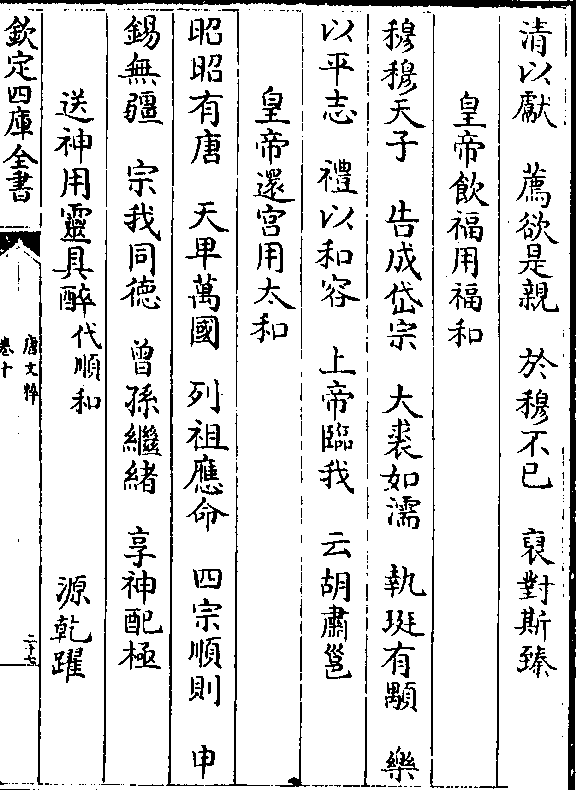 清以獻　薦欲是親　於穆不已　裒對斯臻
皇帝飲福用福和
穆穆天子　告成岱宗　大裘如濡　執珽有顒　樂
以平志　禮以和容　上帝臨我　云胡肅邕
皇帝還宮用太和
昭昭有唐　天甲萬國　列祖應命　四宗順則　申
錫無疆　宗我同德　曾孫繼緒　享神配極
送神用靈具醉代順和　源乾躍
欽定四庫全書
唐文粹
卷十